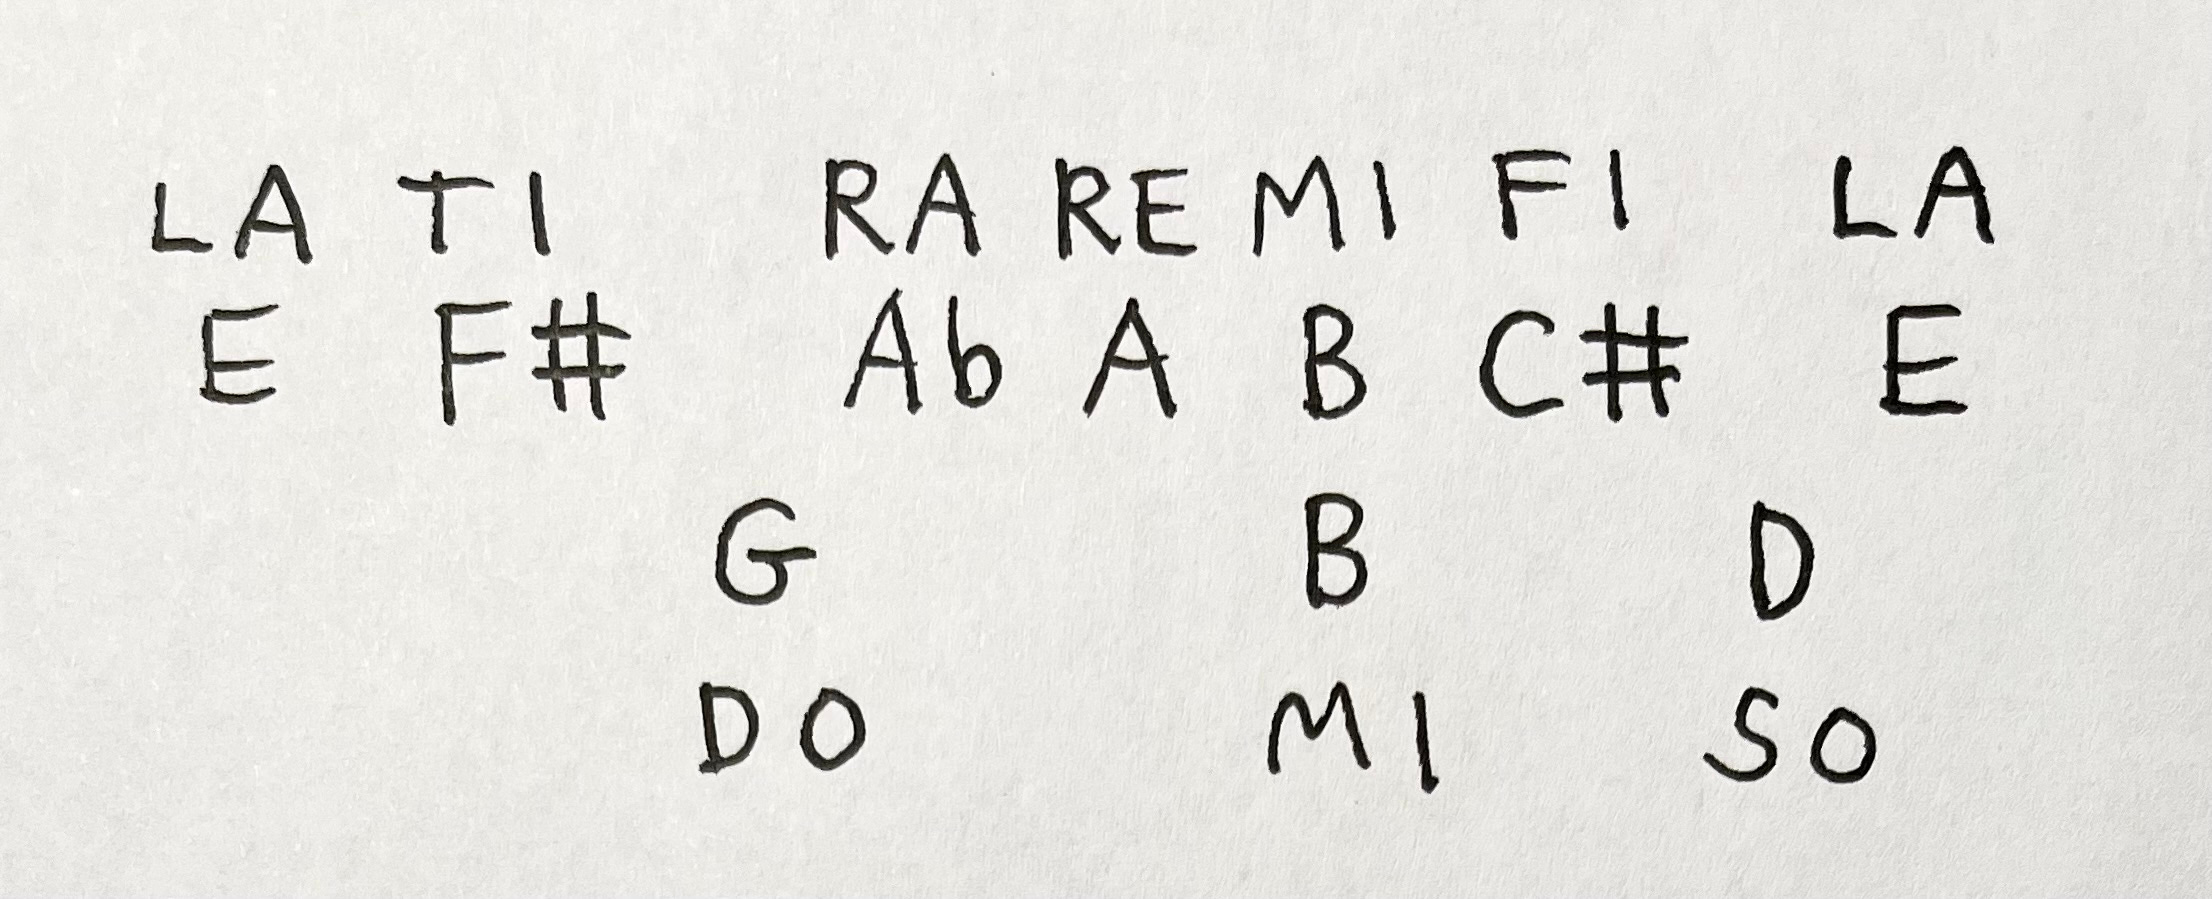 LA TI RA RE MI FI LA
E F# Ab A B C# E
G B D
DO MI SO